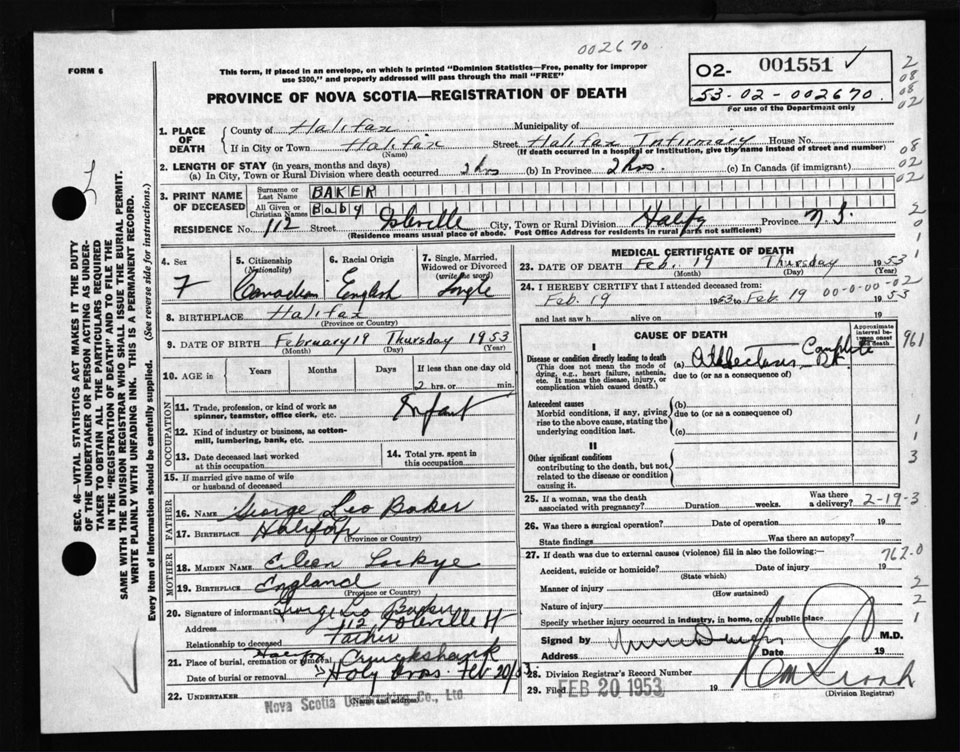 002670
FORM 6
This form, if placed in an envelope, on which is printed "Dominion Statistics—Free, penalty for improper
use $300," and properly addressed will pass through the mail "FREE"
PROVINCE OF NOVA SCOTIA—REGISTRATION OF DEATH
02- 001551 ✓
53-02-002670
For use of the Department only
2
08
08
02
1. PLACE OF DEATH
County of Halifax Municipality of
If in City or Town Halifax Street Halifax Infirmary House No.
(Name) (If death occurred in a hospital or institution, give the name instead of street and number)
08
02
02
2. LENGTH OF STAY (in years, months and days)
(a) In City, Town or Rural Division where death occurred 2 hrs (b) In Province 2 hrs. (c) In Canada (if immigrant)
3. PRINT NAME OF DECEASED
Surname or Last Name BAKER
All Given or Christian Names Baby
RESIDENCE No. 112 Street City, Town or Rural Division Halifax Province N.S.
(Residence means usual place of abode. Post Office Address for residents in rural parts not sufficient)
2
0
1
SEC. 46—VITAL STATISTICS ACT MAKES IT THE DUTY
OF THE UNDERTAKER OR PERSON ACTING AS UNDER-
TAKER TO OBTAIN ALL THE PARTICULARS REQUIRED
IN THE "REGISTRATION OF DEATH" AND TO FILE THE
SAME WITH THE DIVISION REGISTRAR WHO SHALL ISSUE THE BURIAL PERMIT.
WRITE PLAINLY WITH UNFADING INK. THIS IS A PERMANENT RECORD.
Every item of Information should be carefully supplied. (See reverse side for instructions.)
4. Sex
F
5. Citizenship
(Nationality)
Canadian
6. Racial Origin
English
7. Single, Married,
Widowed or Divorced
(write the word)
Single
8. BIRTHPLACE Halifax
(Province or Country)
9. DATE OF BIRTH February 19 Thursday 1953
(Month) (Day) (Year)
10. AGE in
Years Months Days If less than one day old
2 hrs. or min.
OCCUPATION
11. Trade, profession, or kind of work as
spinner, teamster, office clerk, etc. Infant
12. Kind of industry or business, as cotton-
mill, lumbering, bank, etc.
13. Date deceased last worked
at this occupation
14. Total yrs. spent in
this occupation
15. If married give name of wife
or husband of deceased
FATHER
16. NAME George Leo Baker
17. BIRTHPLACE Halifax
(Province or Country)
MOTHER
18. MAIDEN NAME Eileen
19. BIRTHPLACE England
(Province or Country)
20. Signature of informant George Leo Baker
Address 112
Relationship to deceased Father
21. Place of burial, cremation or removal Halifax Cruckshank
Date of burial or removal " Holy Cross. Feb 20/53
22. UNDERTAKER Nova Scotia Undertaking Co., Ltd.
(Name and address)
MEDICAL CERTIFICATE OF DEATH
23. DATE OF DEATH Feb. 19 Thursday 1953
(Month) (Day) (Year)
24. I HEREBY CERTIFY that I attended deceased from:
Feb. 19 1953 to Feb 19 00-0-00-02 1953
and last saw h alive on 19
CAUSE OF DEATH
Approximate
interval be-
tween onset
and death
961
I
Disease or condition directly leading to death
(This does not mean the mode of
dying, e.g., heart failure, asthenia,
etc. It means the disease, injury, or
complication which caused death.)
(a) Complete
due to (or as a consequence of)
Antecedent causes
Morbid conditions, if any, giving
rise to the above cause, stating the
underlying condition last.
(b)
due to (or as a consequence of)
(c)
II
Other significant conditions
contributing to the death, but not
related to the disease or condition
causing it.
1
1
3
25. If a woman, was the death
associated with pregnancy? Duration weeks. Was there
a delivery? 2-19-3
26. Was there a surgical operation? Date of operation 19
State findings Was there an autopsy?
27. If death was due to external causes (violence) fill in also the following:—
762.0
Accident, suicide or homicide? Date of injury 19
(State which)
Manner of injury
(How sustained)
Nature of injury
Specify whether injury occurred in industry, in home, or in public place
2
2
1
Signed by M.D.
Address Date 19
28. Division Registrar's Record Number
29. Filed FEB 20 1953 19
(Division Registrar)